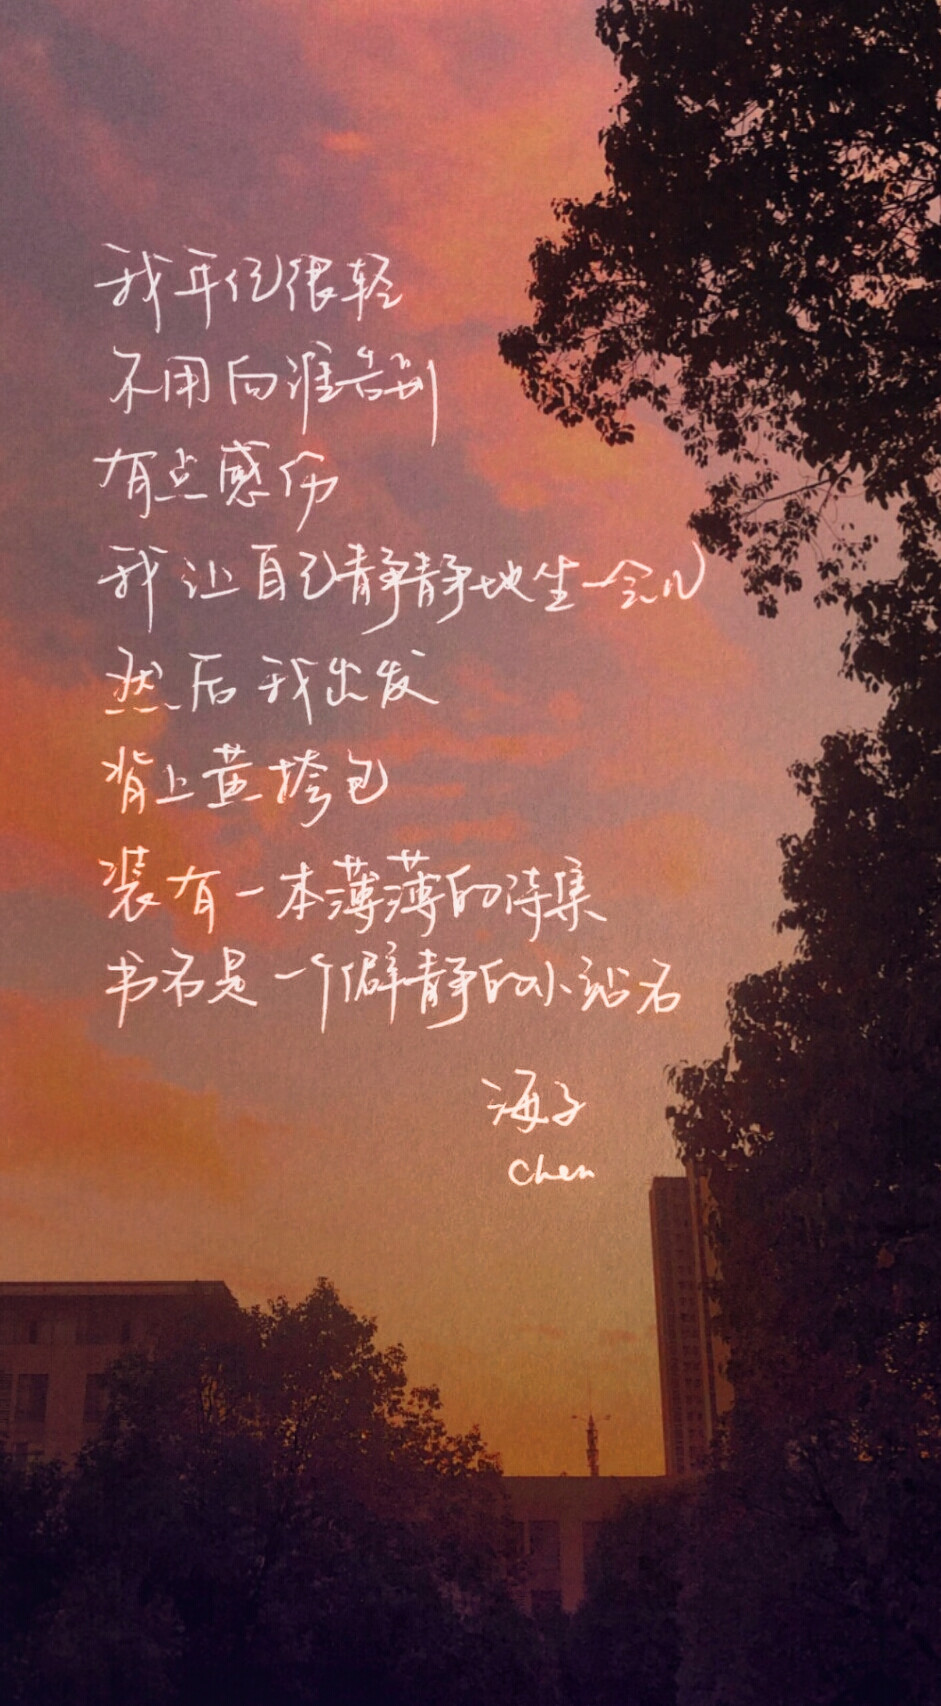 我年纪很轻
不用向谁告别
有点感伤
我让自己静静地坐一会儿
然后我出发
背上黄挎包
装有一本薄薄的诗集
书名是一个僻静的小站名
海子
Chen